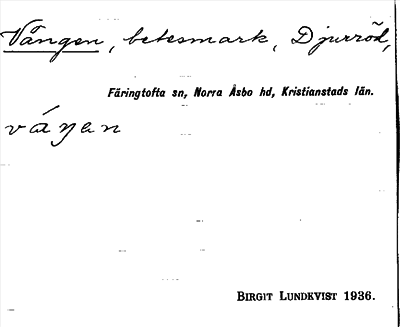 Vången, betesmark, Djurröd,
Färingtofta sn, Norra Åsbo hd, Kristianstads län.
váŋen
BIRGIT LUNDKVIST 1936.